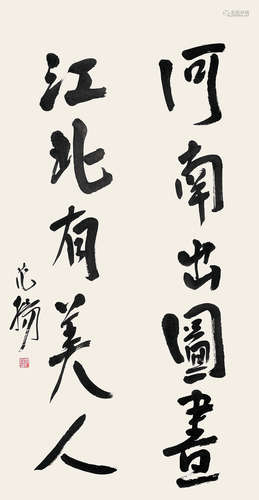 河南出圖畫
江北有美人
范揚